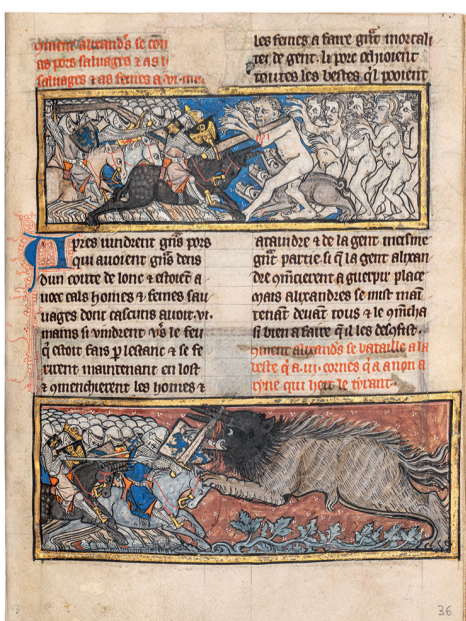 ꝯment alixand's se con
as pors saluages & as h
saluages & as femes a .vi. me
les femes a faire gñt mortali
tei de gent. li porc estrioient
toutes les bestes q̃l pooient
Apres uindrent gñs pors
qui auoient gñs dens
dun coute de lonc & estoiẽt a
uoec eals homes & femes sau
uages dont cascuns auoit .vi.
mains si vindrent v's le feu
q̃ estoit fais p lestanc & se fe
rirent maintenant en lost
& ꝯmenchierent les homes &
ataindre & de la gent meisme
gñt partie. si q̃ la gent alixan
dre ꝯmẽcierent a guerpir place
mais alixandres se mist main
tenant deuãt tous & le ꝯmẽcha
si bien a faire q̃l les desconfist.
ꝯment alixand's se bataille a la
beste q̃ a .iii. cornes q̃ a a non a
tyne qui heit le tyrant.
36